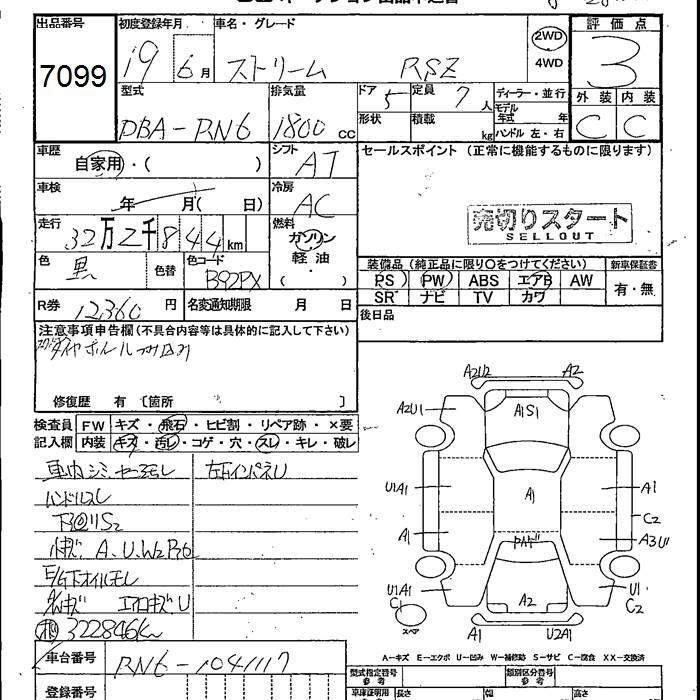 出品番号 初度登録年月 車名・グレード 評価点
7099 19 6月 ストリーム RSZ 2WD 4WD 3
型式 排気量 ドア 5 定員 7人 ディーラー・並行 外装 内装
DBA-RN6 1800cc 形状 積載 kg モデル年式 年 ハンドル 左・右 C C
車歴 自家用・( ) シフト AT セールスポイント (正常に機能するものに限ります)
車検 年 月( 日) 冷房 AC
走行 32万2千844km 燃料 ガソリン 軽油 ( )
売切りスタート
SELLOUT
色 黒 色替 色コード B92PX
装備品 (純正品に限り○をつけてください) 新車保証書
PS PW ABS エアB AW 有・無
SR ナビ TV カワ
R券 12,360円 名変通知期限 月 日
後日品
注意事項申告欄 (不具合内容等は具体的に記入して下さい)
修復歴 有 〔箇所 〕
検査員 FW キズ・飛石・ヒビ割・リペア跡・×要
記入欄 内装 キズ・汚レ・コゲ・穴・スレ・キレ・破レ
車内シミ 左下インパネU
ハンドルスレ
下回リS2
小キズ A.U.W2
E/G下オイルモレ
エアロキズ.U
322846km
A2U2 A2
A2U1 A1S1
U1A1 A1 A1
C2
A1 A3U1
U1A1 A2 U1
C1 C2
スペア A1 U2A1
A-キズ E-エクボ U-凹み W-補修跡 S-サビ C-腐食 XX-交換済
車台番号 RN6-1041117
型式指定番号 参考 類別区分番号 参考
登録番号 車庫証明用 長さ 幅 高さ